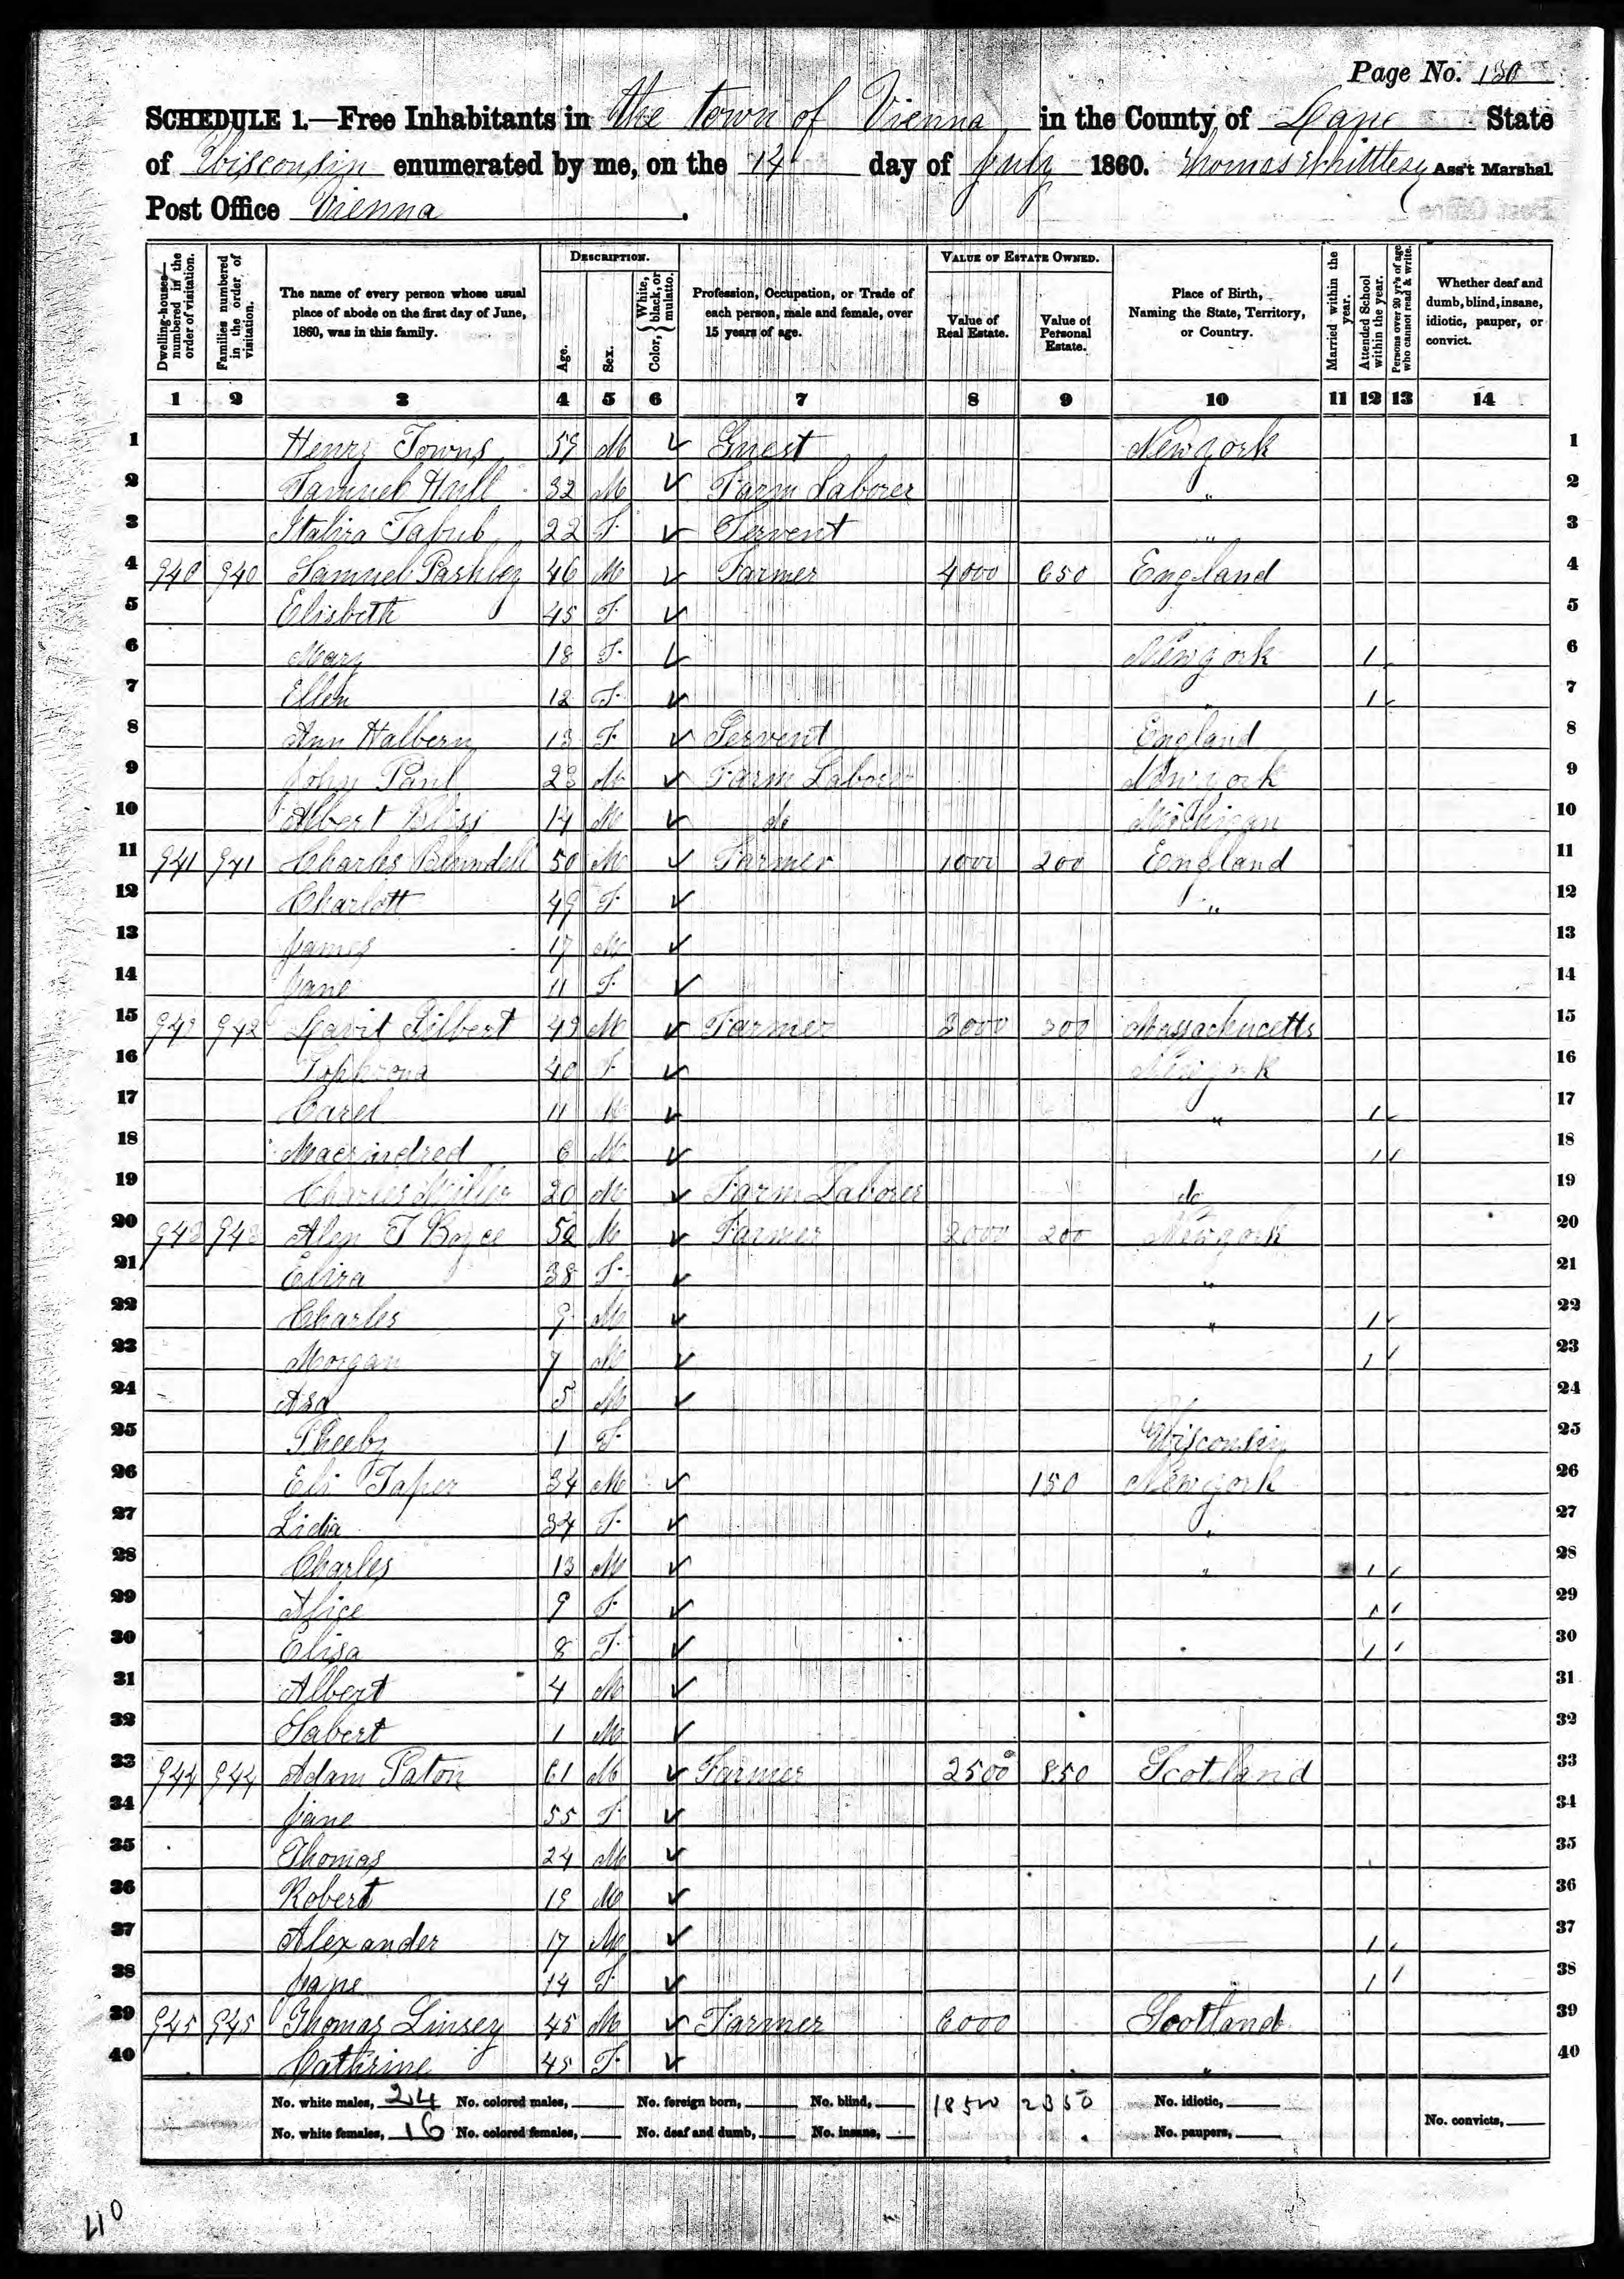 Page No. 130
SCHEDULE 1.—Free Inhabitants in the town of Vienna in the County of Dane State
of Wisconsin enumerated by me, on the 14 day of July 1860. Thomas Whittlesey Ass't Marshal
Post Office Vienna.
Dwelling-houses—numbered in the order of visitation. Families numbered in the order of visitation. The name of every person whose usual place of abode on the first day of June, 1860, was in this family. DESCRIPTION. Age. Sex. Color, { White, black, or mulatto. Profession, Occupation, or Trade of each person, male and female, over 15 years of age. VALUE OF ESTATE OWNED. Value of Real Estate. Value of Personal Estate. Place of Birth, Naming the State, Territory, or Country. Married within the year. Attended School within the year. Persons over 20 y'rs of age who cannot read & write. Whether deaf and dumb, blind, insane, idiotic, pauper, or convict.
1 2 3 4 5 6 7 8 9 10 11 12 13 14
1 Henry Towns 59 M ✓ Guest New york 1
2 Samuel Hull 32 M ✓ Farm Laborer " 2
3 22 F ✓ Servent " 3
4 940 940 Samuel Pashley 46 M ✓ Farmer 4000 650 England 4
5 Elisbeth 45 F ✓ " 5
6 Mary 18 F ✓ New york 1 6
7 Ellen 12 F ✓ " 1 7
8 Ann Halbern 13 F ✓ Servent England 8
9 John Paul 23 M ✓ Farm Laborer New york 9
10 Albert Bliss 14 M ✓ do Michigan 10
11 941 941 Charles Blundell 50 M ✓ Farmer 1000 200 England 11
12 Charlott 49 F ✓ " 12
13 James 17 M ✓ 13
14 Jane 11 F ✓ 14
15 942 942 Gilbert 49 M ✓ Farmer 3000 300 Massachucetts 15
16 40 F ✓ New york 16
17 Carel 11 M ✓ " 1 17
18 6 M ✓ 1 18
19 Charles Miller 20 M ✓ Farm Laborer do 19
20 943 943 Alen T Boyce 52 M ✓ Farmer 2000 200 New york 20
21 Elira 38 F ✓ " 21
22 Charles 9 M ✓ " 1 22
23 Morgan 7 M ✓ 1 23
24 Asa 5 M ✓ 24
25 Pheeby 1 F Wisconsin 25
26 Eli Taper 34 M ✓ 150 New york 26
27 Lidia 34 F ✓ " 27
28 Charles 13 M ✓ " 1 28
29 Alice 9 F ✓ 1 29
30 Elisa 8 F ✓ 1 30
31 Albert 4 M ✓ 31
32 1 M ✓ 32
33 944 944 Adam Paton 61 M ✓ Farmer 2500 850 Scotland 33
34 Jane 55 F ✓ 34
35 Thomas 24 M ✓ 35
36 Robert 19 M ✓ 36
37 Alexander 17 M ✓ 1 37
38 Jane 14 F ✓ 1 38
39 945 945 Thomas Linsey 45 M ✓ Farmer 6000 Scotland 39
40 Cathrine 45 F ✓ " 40
No. white males, 24 No. colored males, No. foreign born, No. blind, 18500 2350 No. idiotic,
No. white females, 16 No. colored females, No. deaf and dumb, No. insane, No. paupers, No. convicts,
40